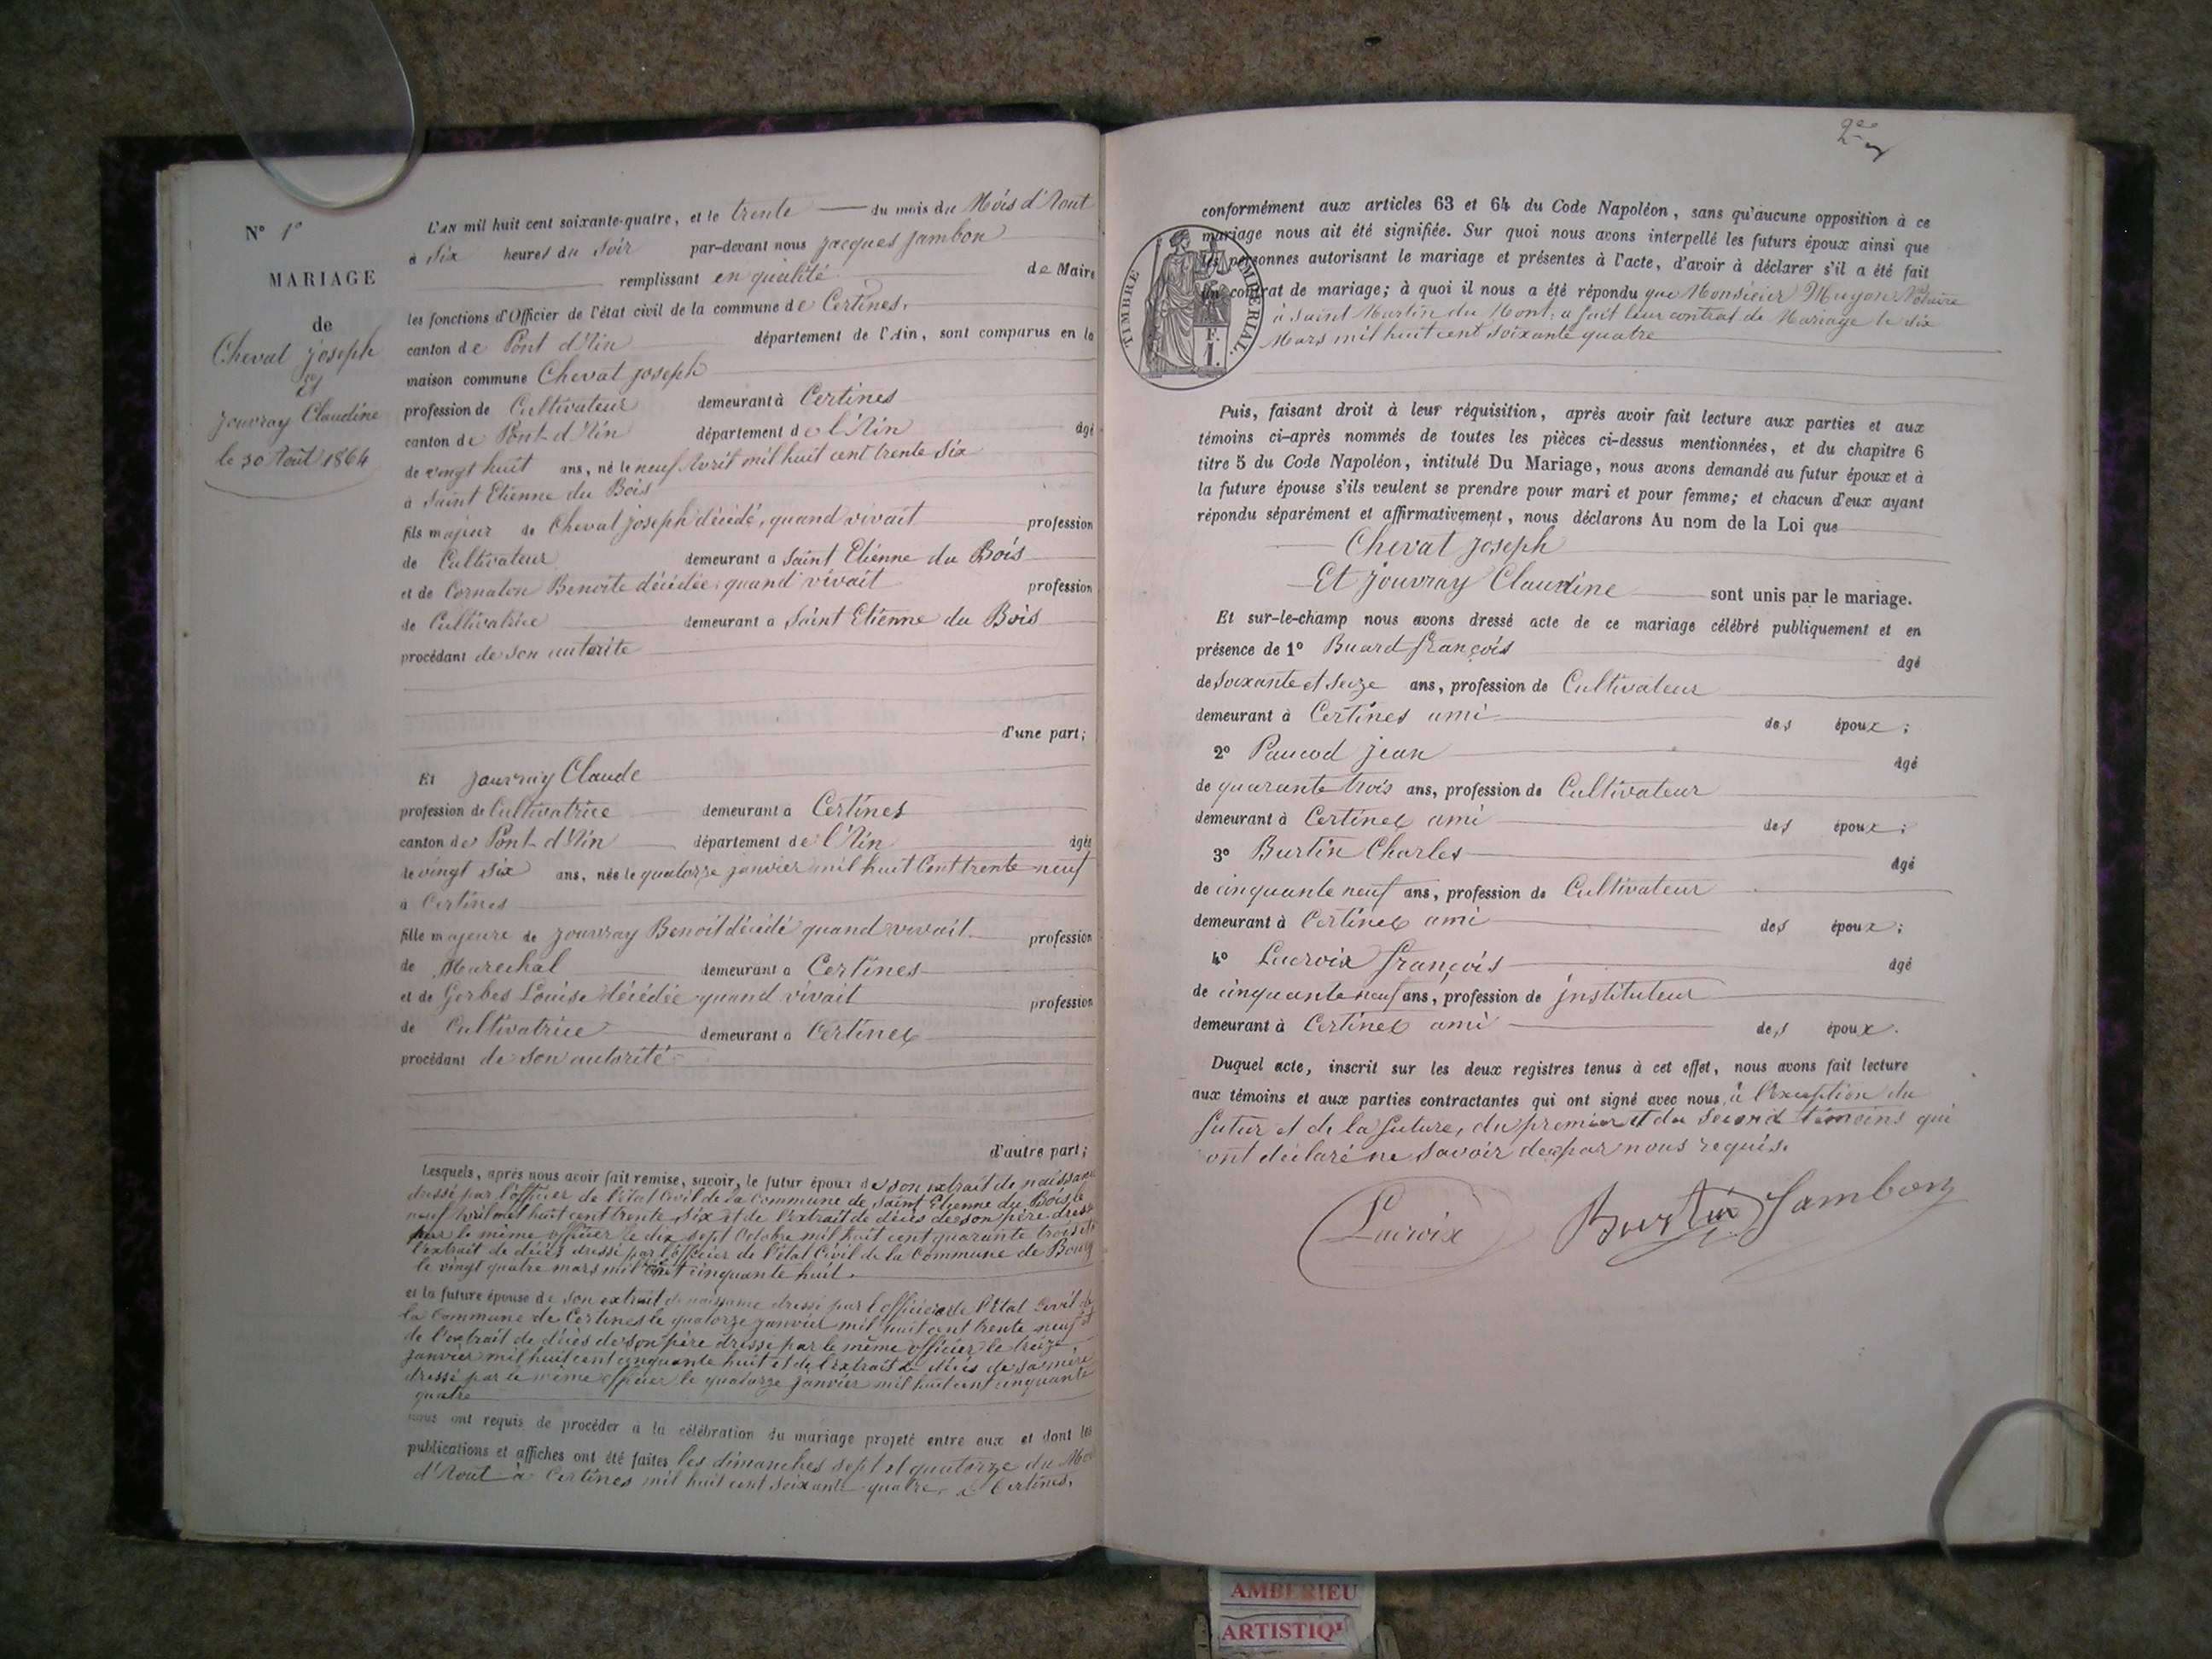 N° 1°
MARIAGE
de
Cheval joseph
Et
jouvray Claudine
le 30 Aout 1864
L'AN mil huit cent soixante-quatre, et le trente du mois du Mois d'Aout
à Six heures du Soir par-devant nous jacques jambon
remplissant en qualité de Maire
les fonctions d'Officier de l'état civil de la commune de Certines,
canton de Pont d'Ain département de l'Ain, sont comparus en la
maison commune Cheval joseph
profession de Cultivateur demeurant à Certines
canton de Pont-d'Ain département de l'Ain âgé
de vingt huit ans, né le neuf Avril mil huit cent trente Six
à Saint Etienne du Bois
fils majeur de Cheval joseph décédé, quand vivait profession
de Cultivateur demeurant à Saint Etienne du Bois
et de Cornaton Benoite décédée, quand vivait profession
de Cultivatrice demeurant à Saint Etienne du Bois
procédant de son autorité
d'une part;
Et jouvray Claude
profession de Cultivatrice demeurant à Certines
canton de Pont-d'Ain département de l'Ain âgée
de vingt Six ans, née le quatorze janvier mil huit Cent trente neuf
à Certines
fille majeure de jouvray Benoit décédé quand vivait profession
de Marechal demeurant à Certines
et de Gerbes Louise décédée quand vivait profession
de Cultivatrice demeurant à Certines
procédant de son autorité
d'autre part;
Lesquels, après nous avoir fait remise, savoir, le futur époux de son extrait de naissance
dressé par l'officier de l'état Civil de la Commune de Saint Etienne du Bois le
neuf Avril mil huit cent trente Six et de l'extrait de décès de son père dressé
par le même officier le dix sept Octobre mil huit cent quarante trois et
l'extrait de décès dressé par l'officier de l'état Civil de la Commune de Bourg
le vingt quatre mars mil huit cinquante huit.
et la future épouse de son extrait de naissance dressé par l'officier de l'état Civil de
la Commune de Certines le quatorze janvier mil huit cent trente neuf et
de l'extrait de décès de son père dressé par le même officier le treize
janvier mil huit cent cinquante huit et de l'extrait de décès de sa mère
dressé par le même officier le quatorze janvier mil huit cent cinquante
quatre
nous ont requis de procéder à la célébration du mariage projeté entre eux et dont les
publications et affiches ont été faites les dimanches sept et quatorze du Mois
d'Aout à Certines mil huit cent soixante quatre, à Certines,
conformément aux articles 63 et 64 du Code Napoléon, sans qu'aucune opposition à ce
mariage nous ait été signifiée. Sur quoi nous avons interpellé les futurs époux ainsi que
les personnes autorisant le mariage et présentes à l'acte, d'avoir à déclarer s'il a été fait
un contrat de mariage; à quoi il nous a été répondu que Monsieur Mugon Notaire
à Saint Martin du Mont, a fait leur contrat de Mariage le dix
Mars mil huit cent soixante quatre
TIMBRE IMPÉRIAL.
1. F.
Puis, faisant droit à leur réquisition, après avoir fait lecture aux parties et aux
témoins ci-après nommés de toutes les pièces ci-dessus mentionnées, et du chapitre 6
titre 5 du Code Napoléon, intitulé Du Mariage, nous avons demandé au futur époux et à
la future épouse s'ils veulent se prendre pour mari et pour femme; et chacun d'eux ayant
répondu séparément et affirmativement, nous déclarons Au nom de la Loi que
Cheval joseph
Et jouvray Claudine sont unis par le mariage.
Et sur-le-champ nous avons dressé acte de ce mariage célébré publiquement et en
présence de 1° Buard françois âgé
de Soixante et Seize ans, profession de Cultivateur
demeurant à Certines ami des époux;
2° Paucod jean âgé
de quarante trois ans, profession de Cultivateur
demeurant à Certines ami des époux;
3° Burtin Charles âgé
de cinquante neuf ans, profession de Cultivateur
demeurant à Certines ami des époux;
4° Lacroix françois âgé
de cinquante neuf ans, profession de jnstituteur
demeurant à Certines ami des époux.
Duquel acte, inscrit sur les deux registres tenus à cet effet, nous avons fait lecture
aux témoins et aux parties contractantes qui ont signé avec nous, à l'exception du
futur et de la future, du premier et du second témoins qui
ont déclaré ne savoir de par nous requis.
Lacroix Burtin Jambon
AMBERIEU
ARTISTIQ